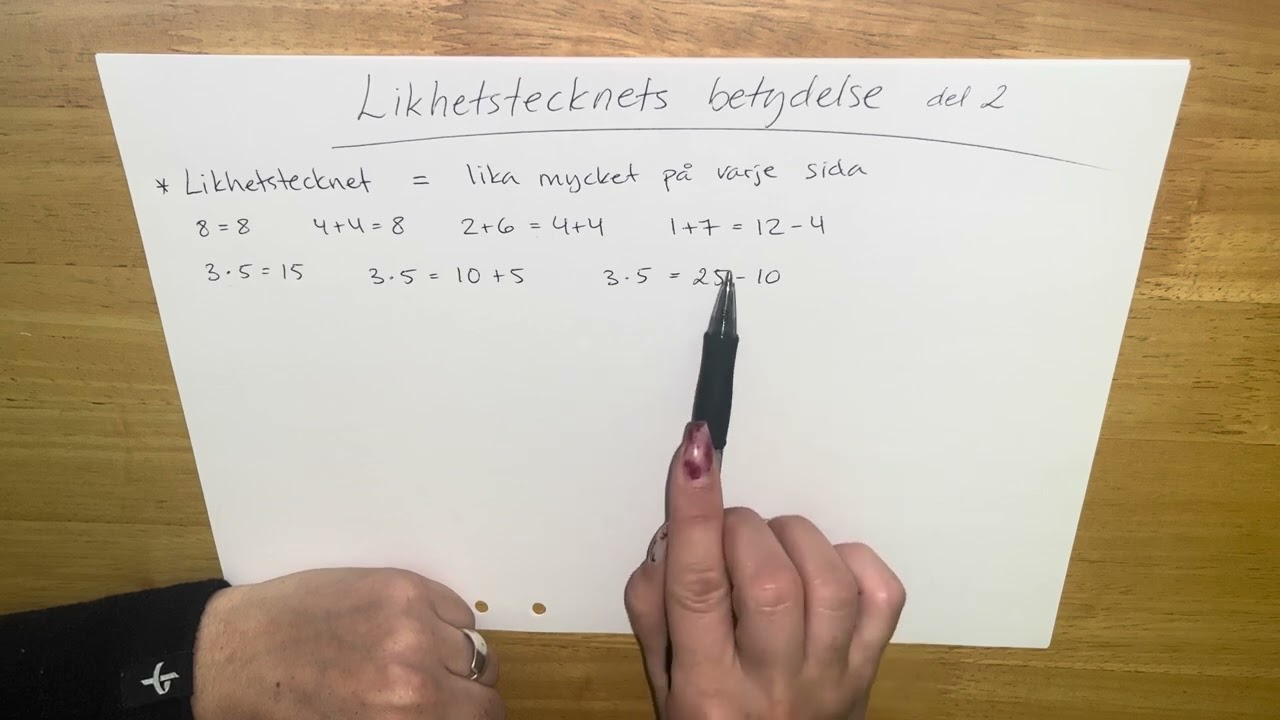 Likhetstecknets betydelse del 2
* Likhetstecknet = lika mycket på varje sida
8 = 8 4+4 = 8 2+6 = 4+4 1+7 = 12-4
3·5 = 15 3·5 = 10+5 3·5 = 25-10